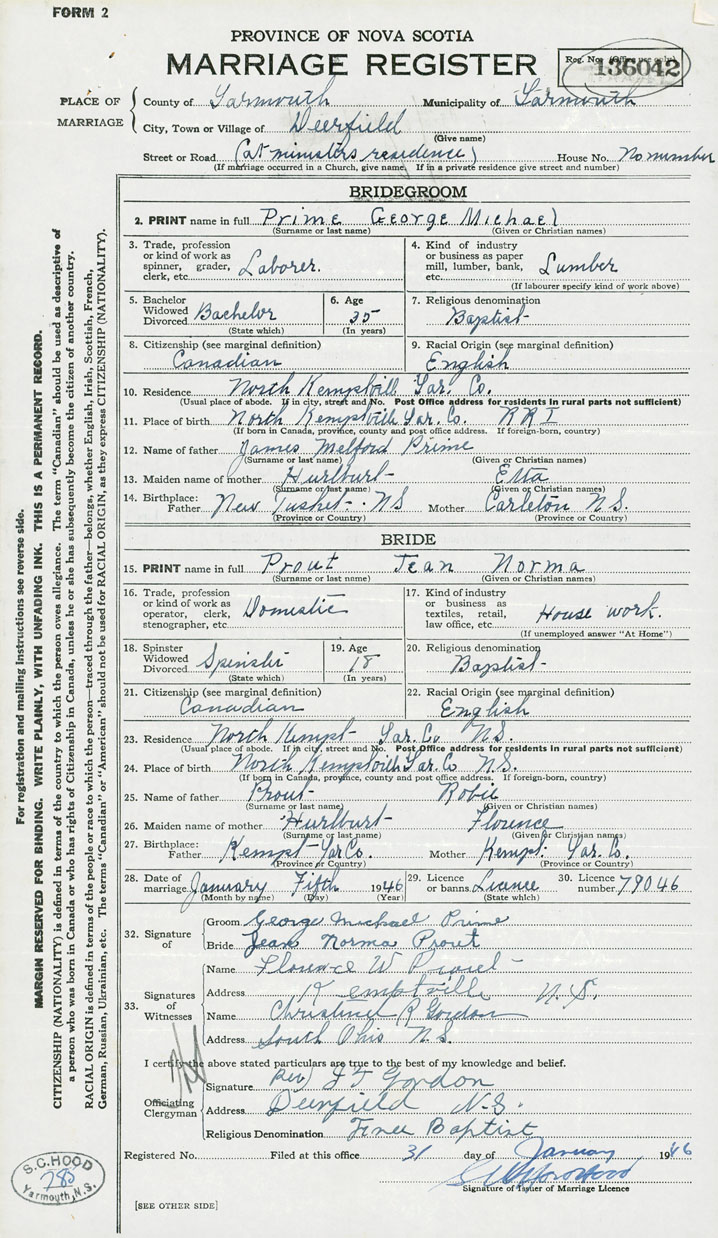 FORM 2
PROVINCE OF NOVA SCOTIA
MARRIAGE REGISTER
Reg. No. (Office use only)
136042
PLACE OF MARRIAGE
County of Yarmouth Municipality of Yarmouth
City, Town or Village of Deerfield
(Give name)
Street or Road (at ministers residence) House No. No number
(If marriage occurred in a Church, give name. If in a private residence give street and number)
BRIDEGROOM
2. PRINT name in full Prime George Michael
(Surname or last name) (Given or Christian names)
3. Trade, profession or kind of work as spinner, grader, clerk, etc. Laborer.
4. Kind of industry or business as paper mill, lumber, bank, etc. Lumber
(If labourer specify kind of work above)
5. Bachelor Widowed Divorced Bachelor
(State which)
6. Age 35
(In years)
7. Religious denomination
Baptist
8. Citizenship (see marginal definition)
Canadian
9. Racial Origin (see marginal definition)
English
10. Residence North Kemptvill Yar. Co.
(Usual place of abode. If in city, street and No. Post Office address for residents in rural parts not sufficient)
11. Place of birth North Kemptvill Yar. Co. RR I
(If born in Canada, province, county and post office address. If foreign-born, country)
12. Name of father James Melford Prime
(Surname or last name) (Given or Christian names)
13. Maiden name of mother Hurlburt Etta
(Surname or last name) (Given or Christian names)
14. Birthplace:
Father New Tusket. NS Mother Carleton N.S.
(Province or Country) (Province or Country)
BRIDE
15. PRINT name in full Prout Jean Norma
(Surname or last name) (Given or Christian names)
16. Trade, profession or kind of work as operator, clerk, stenographer, etc. Domestic
17. Kind of industry or business as textiles, retail, law office, etc. House work.
(If unemployed answer "At Home")
18. Spinster Widowed Divorced Spinster
(State which)
19. Age 18
(In years)
20. Religious denomination
Baptist
21. Citizenship (see marginal definition)
Canadian
22. Racial Origin (see marginal definition)
English
23. Residence North Kempt Yar. Co N.S.
(Usual place of abode. If in city, street and No. Post Office address for residents in rural parts not sufficient)
24. Place of birth North Kemptvill Yar. Co N.S.
(If born in Canada, province, county and post office address. If foreign-born, country)
25. Name of father Prout Robie
(Surname or last name) (Given or Christian names)
26. Maiden name of mother Hurlburt Florence
(Surname or last name) (Given or Christian names)
27. Birthplace:
Father Kempt Yar Co. Mother Kempt. Yar. Co.
(Province or Country) (Province or Country)
28. Date of marriage January Fifth 1946
(Month by name) (Day) (Year)
29. Licence or banns Licence
(State which)
30. Licence number 79046
32. Signature of
Groom George Michael Prime
Bride Jean Norma Prout
33. Signatures of Witnesses
Name Florence W Prout
Address Kemptville N.S.
Name Christine R Gordon
Address South Ohio N.S.
I certify the above stated particulars are true to the best of my knowledge and belief.
Officiating Clergyman
Signature Rev) Gordon
Address Deerfield N.S.
Religious Denomination Free Baptist
Registered No. Filed at this office 31 day of January 1946
Signature of Issuer of Marriage Licence
[SEE OTHER SIDE]
S.C. HOOD
285
Yarmouth, N.S.
For registration and mailing instructions see reverse side.
MARGIN RESERVED FOR BINDING. WRITE PLAINLY, WITH UNFADING INK. THIS IS A PERMANENT RECORD.
CITIZENSHIP (NATIONALITY) is defined in terms of the country to which the person owes allegiance. The term "Canadian" should be used as descriptive of
a person who was born in Canada or who has rights of Citizenship in Canada, unless he or she has subsequently become the citizen of another country.
RACIAL ORIGIN is defined in terms of the people or race to which the person—traced through the father—belongs, whether English, Irish, Scottish, French,
German, Russian, Ukrainian, etc. The terms "Canadian" or "American" should not be used for RACIAL ORIGIN, as they express CITIZENSHIP (NATIONALITY).